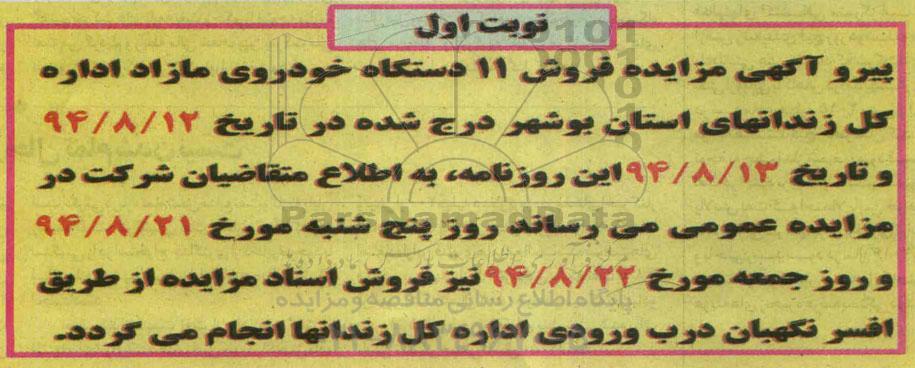 نوبت اول
پیرو آگهی مزایده فروش ۱۱ دستگاه خودروی مازاد اداره
کل زندانهای استان بوشهر درج شده در تاریخ ۹۴/۸/۱۲
و تاریخ ۹۴/۸/۱۳ این روزنامه، به اطلاع متقاضیان شرکت در
مزایده عمومی می رساند روز پنج شنبه مورخ ۹۴/۸/۲۱
و روز جمعه مورخ ۹۴/۸/۲۲ نیز فروش اسناد مزایده از طریق
افسر نگهبان درب ورودی اداره کل زندانها انجام می گردد.
ParsNamadData
پایگاه اطلاع رسانی مناقصه و مزایده